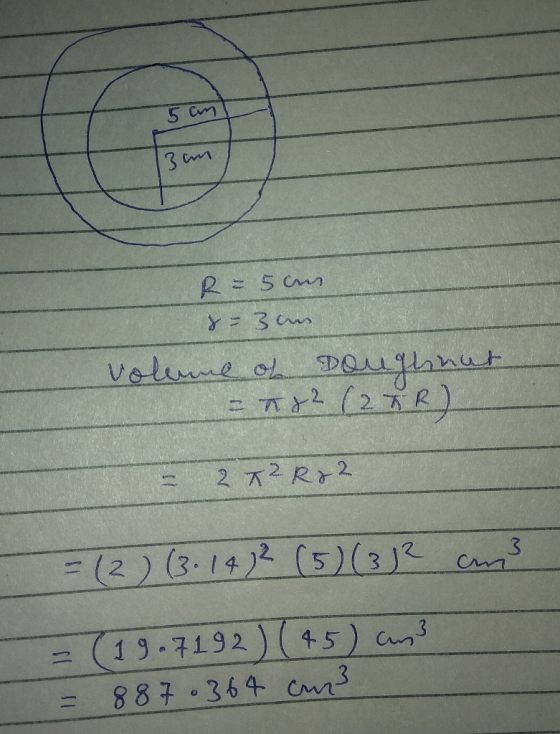 5 cm
3 cm
R = 5 cm
r = 3 cm
Volume of Doughnut
= πr² (2πR)
= 2π²Rr²
= (2) (3.14)² (5)(3)² cm³
= (19.7192)(45) cm³
= 887.364 cm³